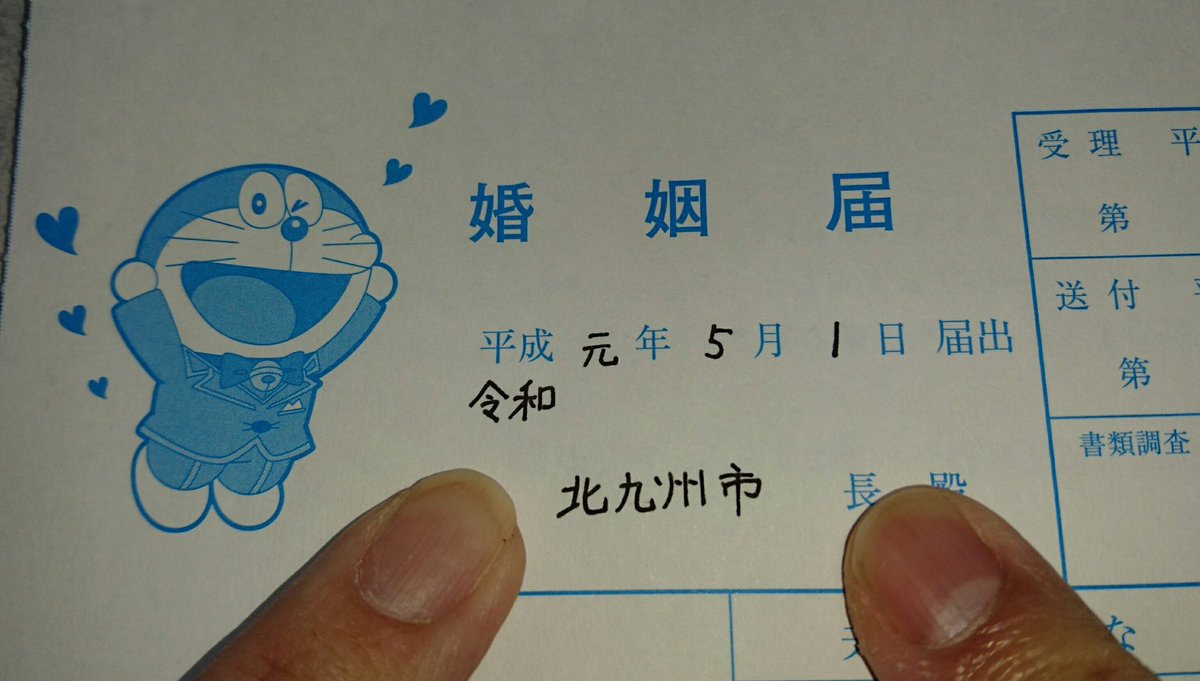 婚姻届
平成元年5月1日届出
令和
北九州市長殿
受理 平
第
送付
第
書類調査
な